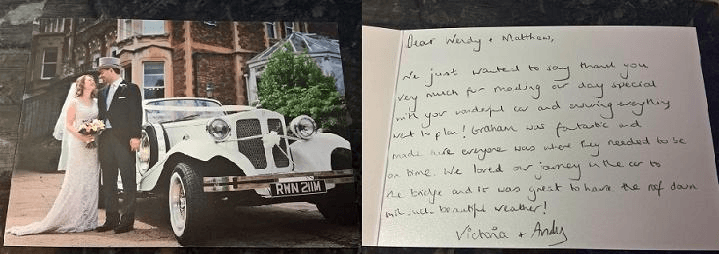 RWN 211M
Dear Wendy + Matthew,
We just wanted to say thank you
very much for making our day special
with your wonderful car and ensuring everything
went to plan! Graham was fantastic and
made sure everyone was where they needed to be
on time. We loved our journey in the car to
the bridge and it was great to have the roof down
with such beautiful weather!
Victoria + Andy